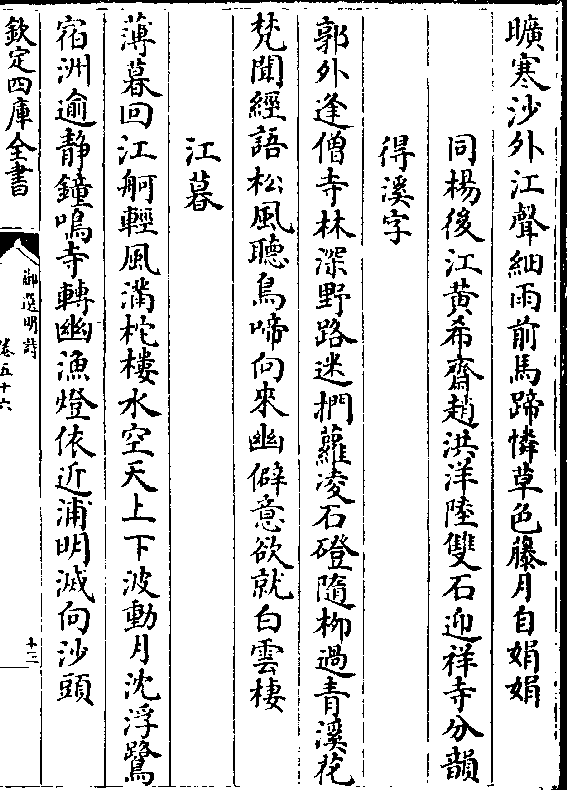 曠寒沙外江聲細雨前馬蹄憐草色藤月自娟娟
同楊後江黃希齋趙洪洋陸雙石迎祥寺分韻
得溪字
郭外逢僧寺林深野路迷捫蘿凌石磴隨柳過青溪花
梵聞經語松風聽鳥啼向來幽僻意欲就白雲棲
江暮
薄暮回江舸輕風滿柁樓水空天上下波動月沈浮鷺
宿洲逾静鐘鳴寺轉幽漁燈依近浦明滅向沙頭
欽定四庫全書
御選明詩
卷五十六
十三